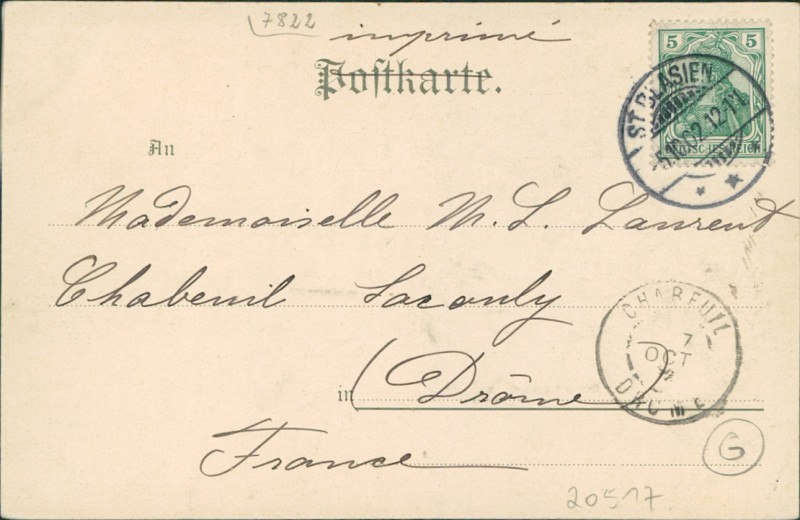 7822
imprimé
Postkarte.
5 5
DEUTSCHES REICH
ST. BLASIEN
.02.12-1N.
An
Mademoiselle M. L. Laurent
Chabeuil
CHABEUIL
7
OCT
DROME
in (Drôme)
France
G
20517